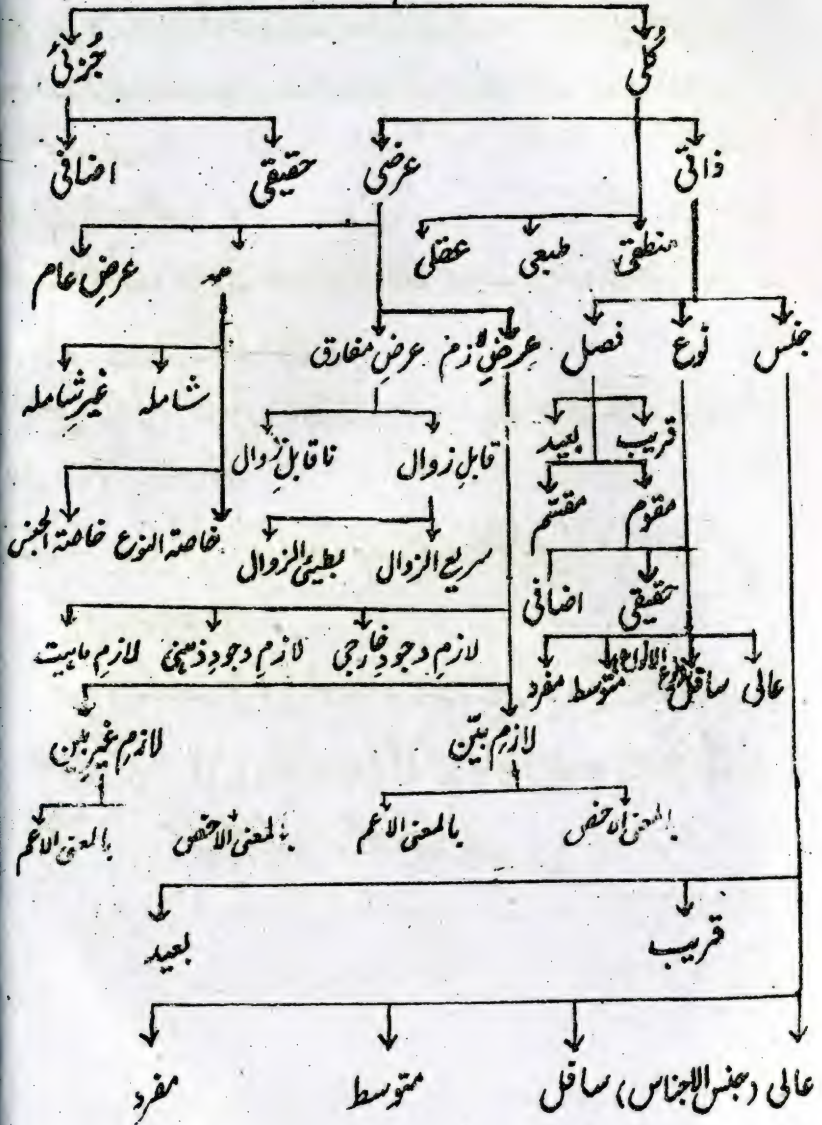 کُلی جُزئی
ذاتی عرضی حقیقی اضافی
منطقی طبعی عقلی عرضِ عام
جنس نوع فصل عرضِ لازم عرضِ مفارق شاملہ غیر شاملہ
قریب بعید قابلِ زوال ناقابلِ زوال
مقوم مقسّم سریع الزوال بطیئ الزوال خاصۃ النوع خاصۃ الجنس
حقیقی اضافی
لازمِ وجودِ خارجی لازمِ وجودِ ذہنی لازمِ ماہیت
عالی سافل متوسط مفرد
لازمِ بیّن لازمِ غیر بیّن
بالمعنی الاخص بالمعنی الاعم بالمعنی الاخص بالمعنی الاعم
قریب بعید
عالی (جنس الاجناس) سافل متوسط مفرد